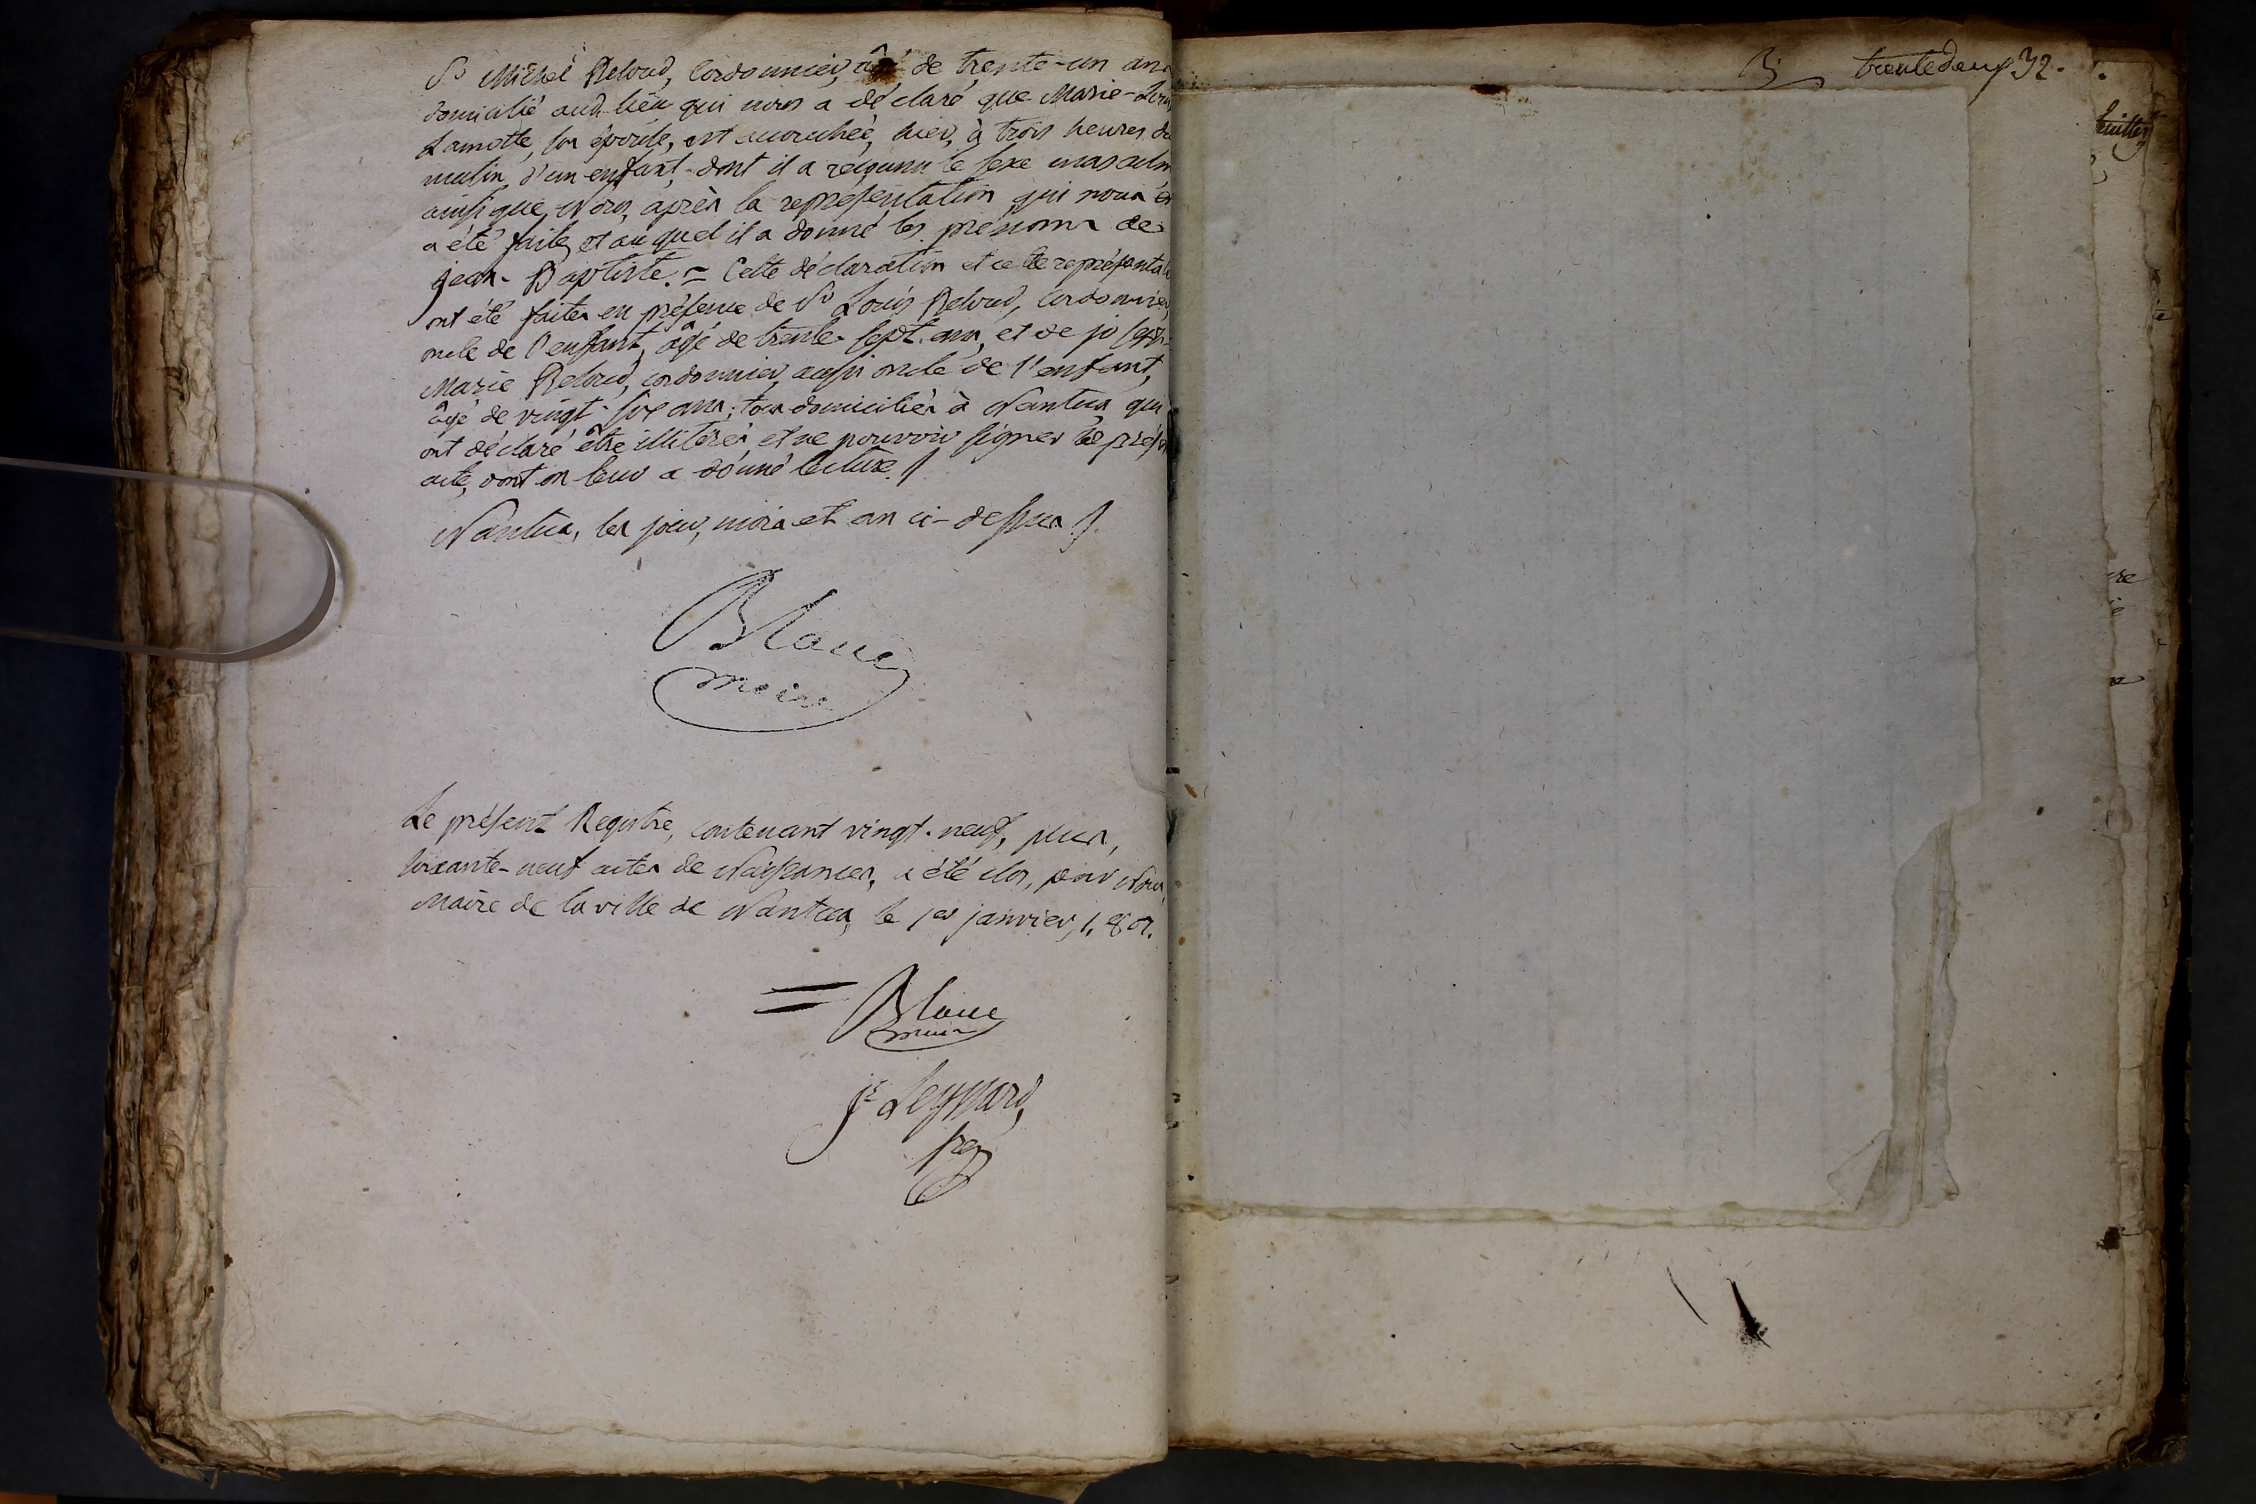 Sr Michel Reloud, Cordonnier, âgé de trente-un ans
domicilié aud. lieu qui nous a déclaré que Marie-
Lamotte, son épouse, est accouchée, hier, à trois heures du
matin, d'un enfant, dont il a reconnu le sexe masculin
ainsi que, Nous, après la représentation qui nous en
a été faite, et auquel il a donné les prénoms de
jean-Baptiste. = Cette déclaration et cette représentat
ont été faites en présence de Sr Louis Reloud, Cordonnier,
oncle de l'enfant, âgé de trente-sept ans, et de joseph-
Marie Reloud, cordonnier, aussi oncle de l'enfant,
âgé de vingt-six ans; tous domiciliés à Nantua, qui
ont déclaré être illiterés et ne pouvoir signer le prés
acte, dont on leur a donné lecture./.
Nantua, les jour, mois et an ci-dessus./.
Blanc
maire
Le présent Registre, contenant vingt-neuf, plus,
soixante-neuf actes de Naissances, a été clos, par Nous,
Maire de la ville de Nantua, le 1er janvier, 1,807.
= Blanc
maire
jh Leyssard,
sre
trente deux 32.